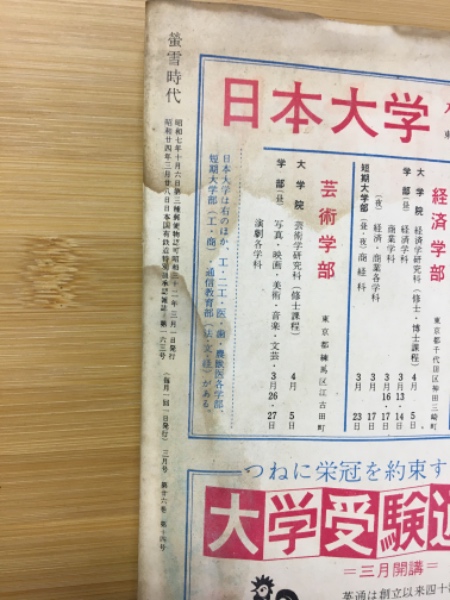 螢雪時代
昭和七年十月六日第三種郵便物認可昭和三十二年三月一日発行
昭和廿四年三月廿八日日本国有鉄道特別扱承認雑誌第一六三号
(毎月一回一日発行) 三月号 第廿六巻 第十四号
日本大学
経済学部
東京都千代田区神田三崎町
大学院 経済学研究科(修士・博士課程) 4月5日
学部(昼) 経済学科 3月13・14日
商業学科
(夜) 経済・商業各学科 3月16・17日
短期大学部(昼・夜) 商経科 3月23日
芸術学部
東京都練馬区江古田町
大学院 芸術学研究科(修士課程) 4月5日
学部(昼) 写真・映画・美術・音楽・文芸・演劇各学科 3月26・27日
日本大学は右のほか、工・二工・医・歯・農獣医各学部、
短期大学部(工・商)・通信教育部(法・文・経)がある。
つねに栄冠を約束す
大学受験
=三月開講=
英通は創立以来四十